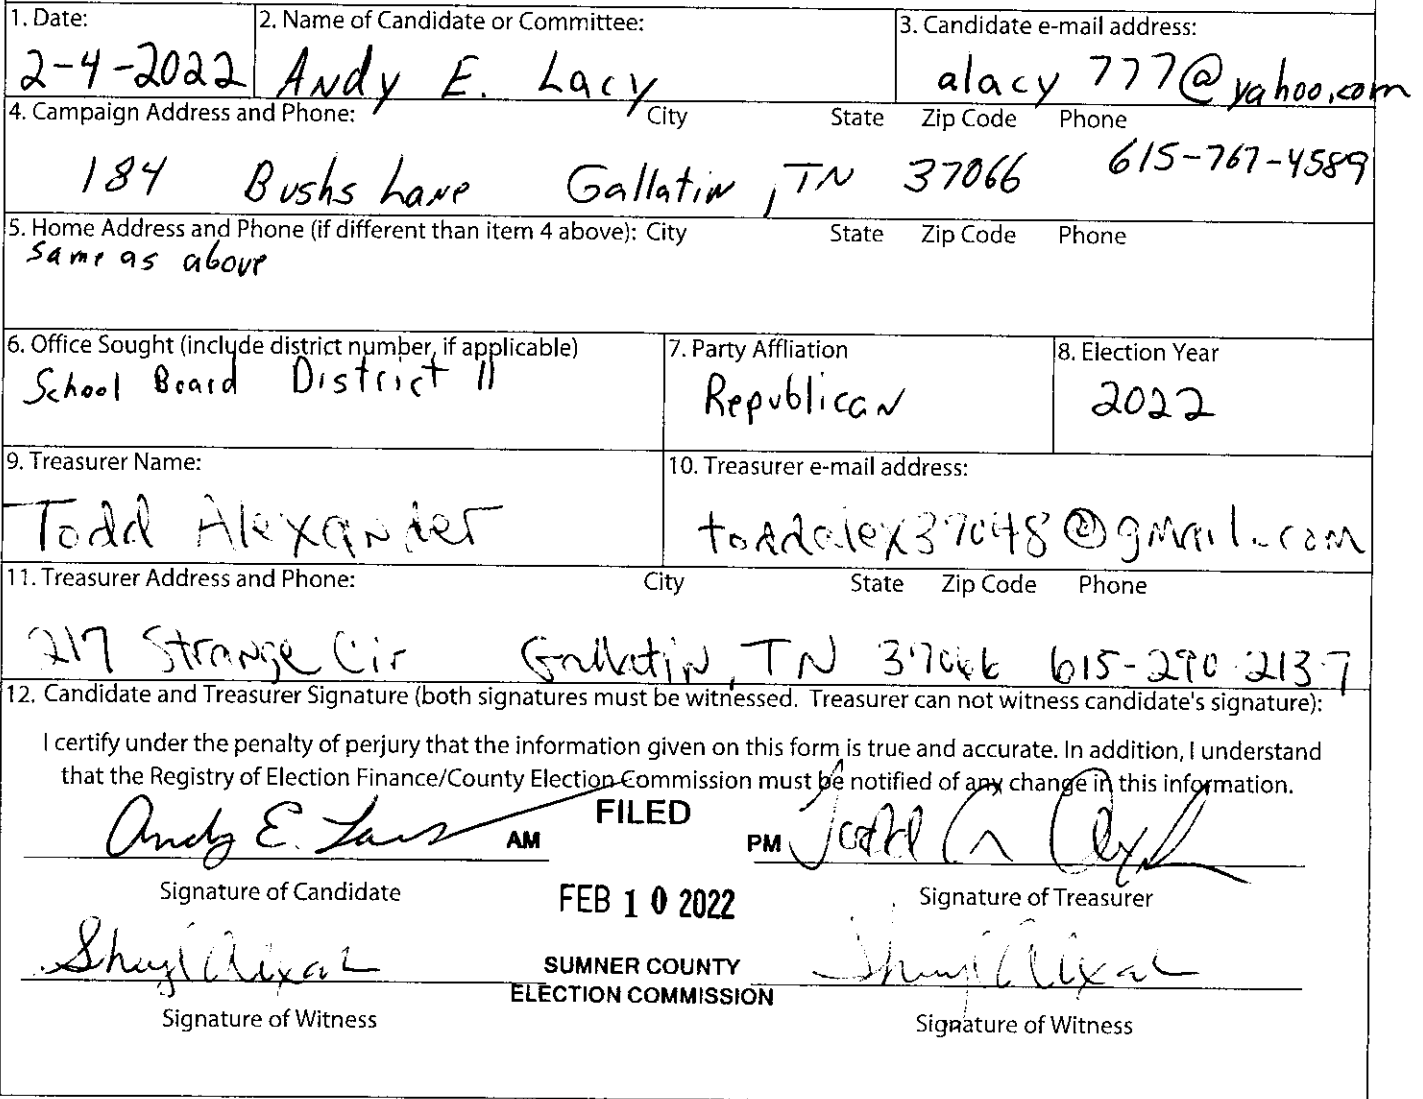 1. Date: 2. Name of Candidate or Committee: 3. Candidate e-mail address:
2-4-2022 Andy E. Lacy alacy777@yahoo.com
4. Campaign Address and Phone: City State Zip Code Phone
184 Bushs Lane Gallatin, TN 37066 615-767-4589
5. Home Address and Phone (if different than item 4 above): City State Zip Code Phone
Same as above
6. Office Sought (include district number, if applicable) 7. Party Affliation 8. Election Year
School Board District 11 Republican 2022
9. Treasurer Name: 10. Treasurer e-mail address:
Todd Alexander toddalex37048@gmail.com
11. Treasurer Address and Phone: City State Zip Code Phone
217 Strange Cir Gallatin, TN 37066 615-290-2137
12. Candidate and Treasurer Signature (both signatures must be witnessed. Treasurer can not witness candidate's signature):
I certify under the penalty of perjury that the information given on this form is true and accurate. In addition, I understand
that the Registry of Election Finance/County Election Commission must be notified of any change in this information.
Andy E. Lacy AM FILED PM Todd
Signature of Candidate FEB 10 2022 Signature of Treasurer
SUMNER COUNTY
ELECTION COMMISSION
Signature of Witness Signature of Witness